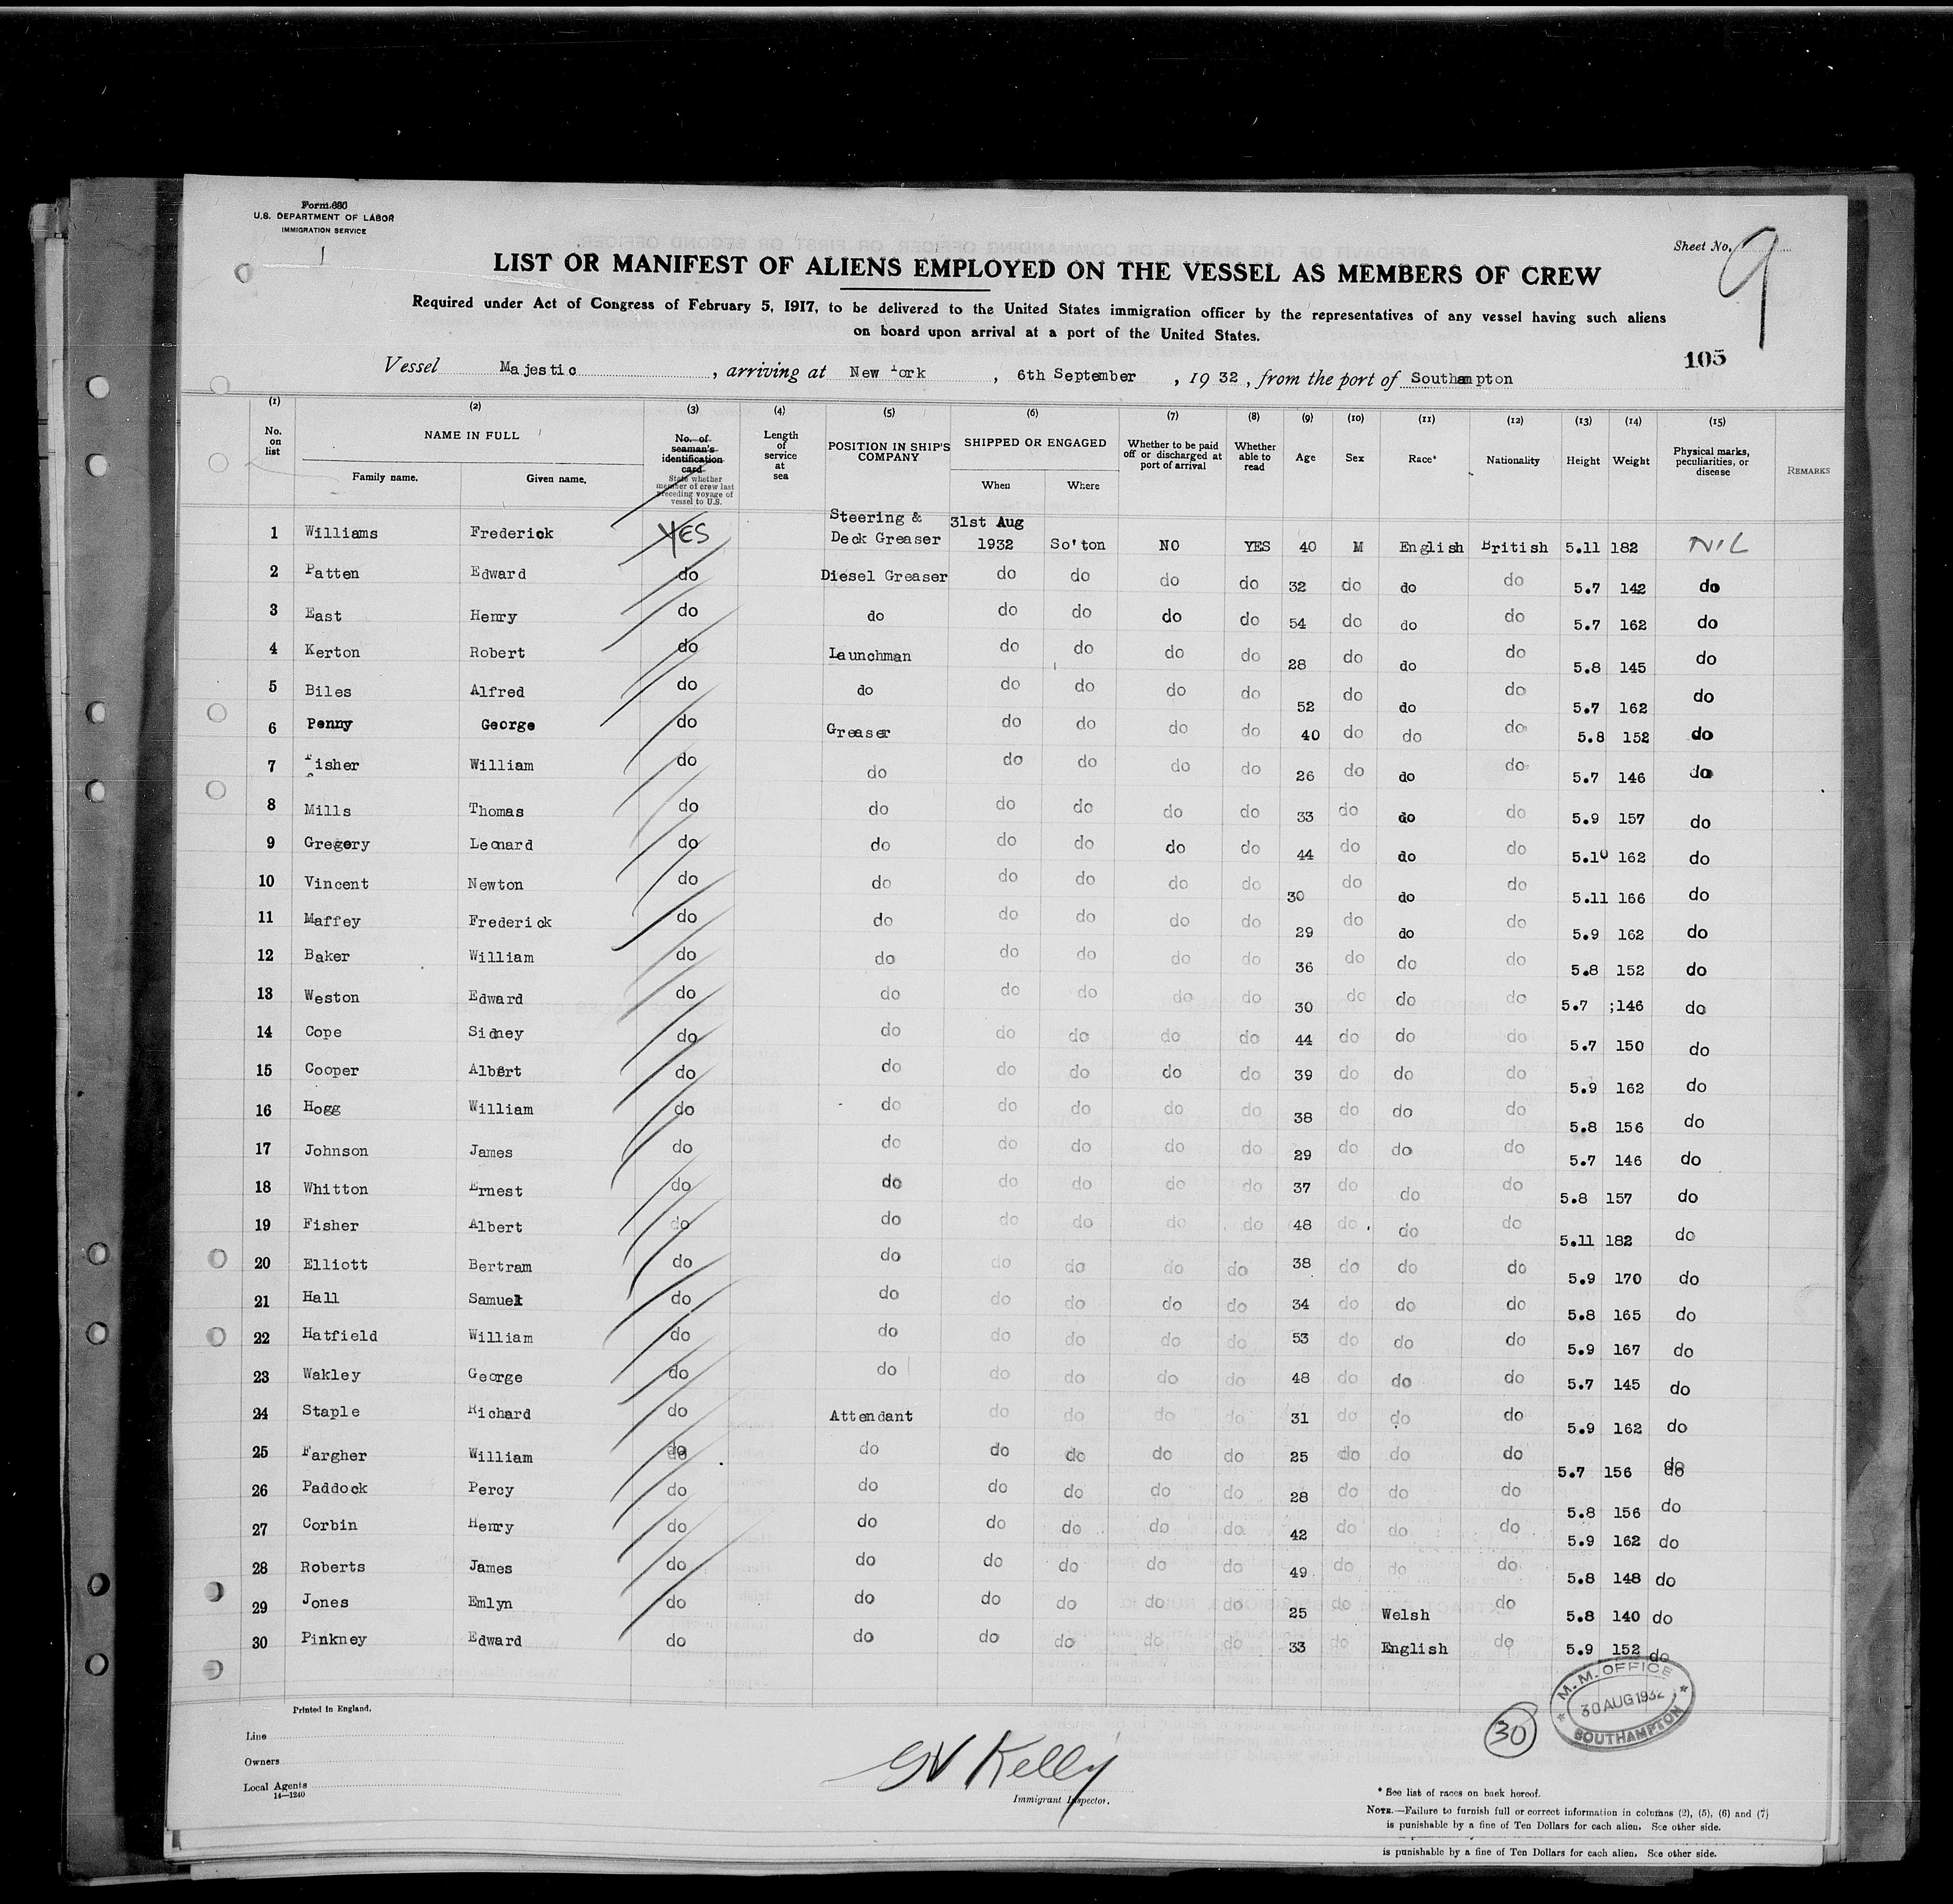 Form 680
U.S. DEPARTMENT OF LABOR
IMMIGRATION SERVICE
Sheet No. 9
LIST OR MANIFEST OF ALIENS EMPLOYED ON THE VESSEL AS MEMBERS OF CREW
Required under Act of Congress of February 5, 1917, to be delivered to the United States immigration officer by the representatives of any vessel having such aliens
on board upon arrival at a port of the United States.
105
Vessel Majestic, arriving at New York, 6th September, 1932, from the port of Southampton
(1) (2) (3) (4) (5) (6) (7) (8) (9) (10) (11) (12) (13) (14) (15)
No. on list NAME IN FULL Family name. Given name. No. of seaman's identification card State whether member of crew last preceding voyage of vessel to U.S. Length of service at sea POSITION IN SHIP'S COMPANY SHIPPED OR ENGAGED When Where Whether to be paid off or discharged at port of arrival Whether able to read Age Sex Race* Nationality Height Weight Physical marks, peculiarities, or disease REMARKS
1 Williams Frederick YES Steering & Deck Greaser 31st Aug 1932 So'ton NO YES 40 M English British 5.11 182 NIL
2 Patten Edward do Diesel Greaser do do do do 32 do do do 5.7 142 do
3 East Henry do do do do do do 54 do do do 5.7 162 do
4 Kerton Robert do Launchman do do do do 28 do do do 5.8 145 do
5 Biles Alfred do do do do do do 52 do do do 5.7 162 do
6 Penny George do Greaser do do do do 40 do do do 5.8 152 do
7 Fisher William do do do do do do 26 do do do 5.7 146 do
8 Mills Thomas do do do do do do 33 do do do 5.9 157 do
9 Gregory Leonard do do do do do do 44 do do do 5.10 162 do
10 Vincent Newton do do do do do do 30 do do do 5.11 166 do
11 Maffey Frederick do do do do do do 29 do do do 5.9 162 do
12 Baker William do do do do do do 36 do do do 5.8 152 do
13 Weston Edward do do do do do do 30 do do do 5.7 ;146 do
14 Cope Sidney do do do do do do 44 do do do 5.7 150 do
15 Cooper Albert do do do do do do 39 do do do 5.9 162 do
16 Hogg William do do do do do do 38 do do do 5.8 156 do
17 Johnson James do do do do do do 29 do do do 5.7 146 do
18 Whitton Ernest do do do do do do 37 do do do 5.8 157 do
19 Fisher Albert do do do do do do 48 do do do 5.11 182 do
20 Elliott Bertram do do do do do do 38 do do do 5.9 170 do
21 Hall Samuel do do do do do do 34 do do do 5.8 165 do
22 Hatfield William do do do do do do 53 do do do 5.9 167 do
23 Wakley George do do do do do do 48 do do do 5.7 145 do
24 Staple Richard do Attendant do do do do 31 do do do 5.9 162 do
25 Fargher William do do do do do do 25 do do do 5.7 156 do
26 Paddock Percy do do do do do do 28 do do do 5.8 156 do
27 Corbin Henry do do do do do do 42 do do do 5.9 162 do
28 Roberts James do do do do do do 49 do do do 5.8 148 do
29 Jones Emlyn do do do do do do 25 do Welsh do 5.8 140 do
30 Pinkney Edward do do do do do do 33 do English do 5.9 152 do
Printed in England.
Line
Owners
Local Agents
14—1240
GV Kelly
Immigrant Inspector.
30
M. M. OFFICE
30 AUG 1932
SOUTHAMPTON
* See list of races on back hereof.
NOTE.—Failure to furnish full or correct information in columns (2), (5), (6) and (7)
is punishable by a fine of Ten Dollars for each alien. See other side.
is punishable by a fine of Ten Dollars for each alien. See other side.